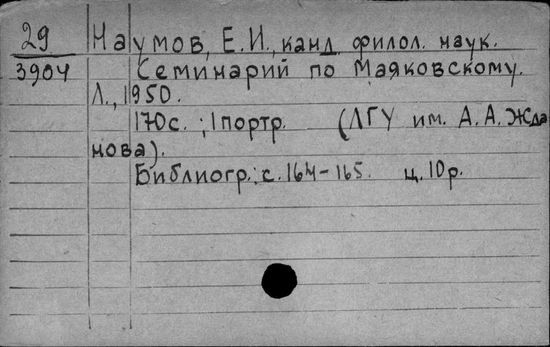 29 Наумов, Е.И., канд. филол. наук.
3904 Семинарий по Маяковскому.
Л., 1950.
170с.; 1портр. (ЛГУ им. А.А. Жда
нова).
Библиогр.: с. 164-165. ц. 10р.